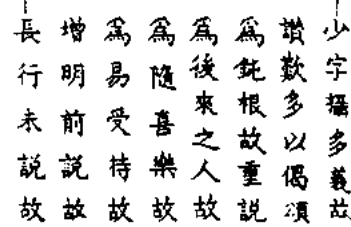 少字攝多義故
讚歎多以偈頌
爲鈍根故重說
爲後來之人故
爲隨喜樂故
爲易受持故
增明前說故
長行未説故